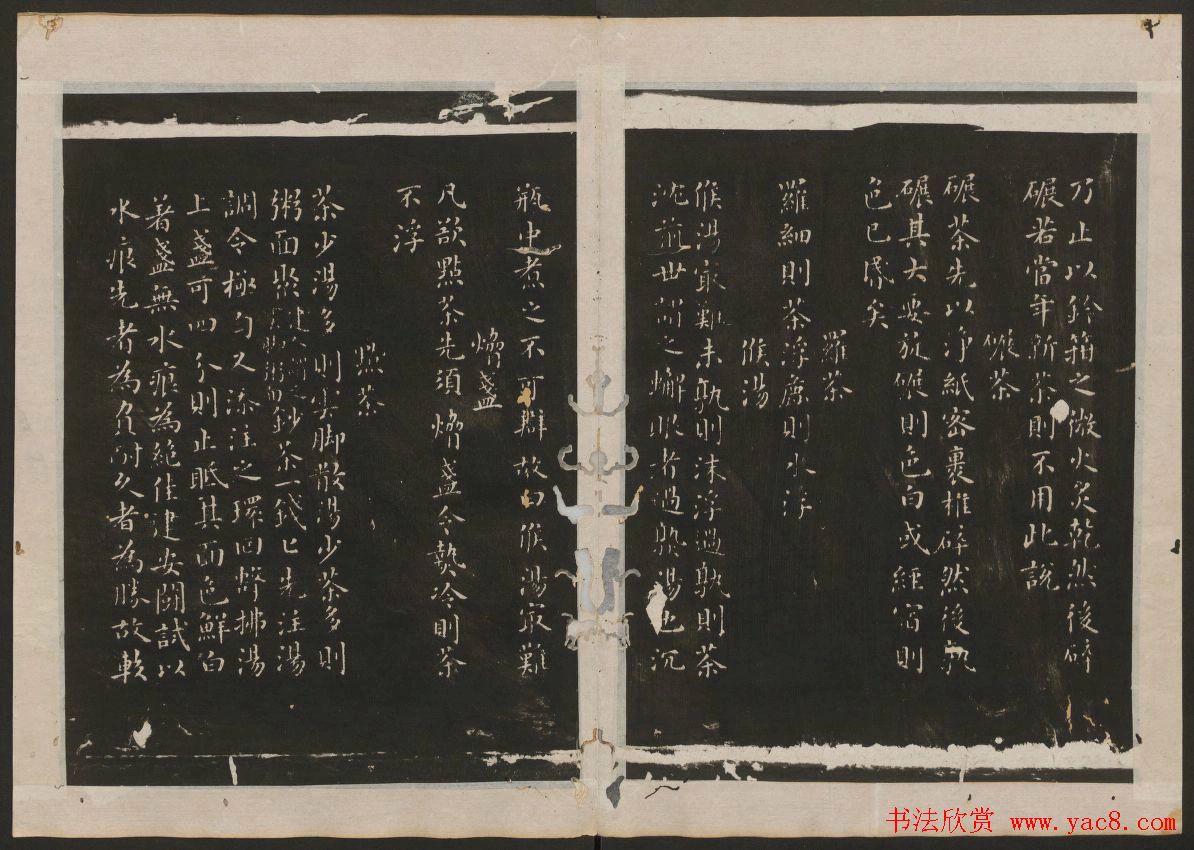 乃止以鈐箝之微火炙乾然後碎
碾若當年新茶則不用此說
碾茶
碾茶先以淨紙密裹椎碎然後熟
碾其大要旋碾則色白或經宿則
色已昬矣
羅茶
羅細則茶浮麄則水浮
候湯
候湯冣難未熟則沫浮過熟則茶
沈前世謂之蠏眼者過熟湯也沉
瓶中煮之不可辯故曰候湯冣難
熁盞
凡欲點茶先須熁盞令熱冷則茶
不浮
點茶
茶少湯多則雲脚散湯少茶多則
粥面聚建人謂之雲脚粥面鈔茶一錢匕先注湯
調令極勻又添注之環回擊拂湯
上盞可四分則止眡其面色鮮白
著盞無水痕為絕佳建安鬭試以
水痕先者為負耐久者為勝故較
书法欣赏 www.yac8.com